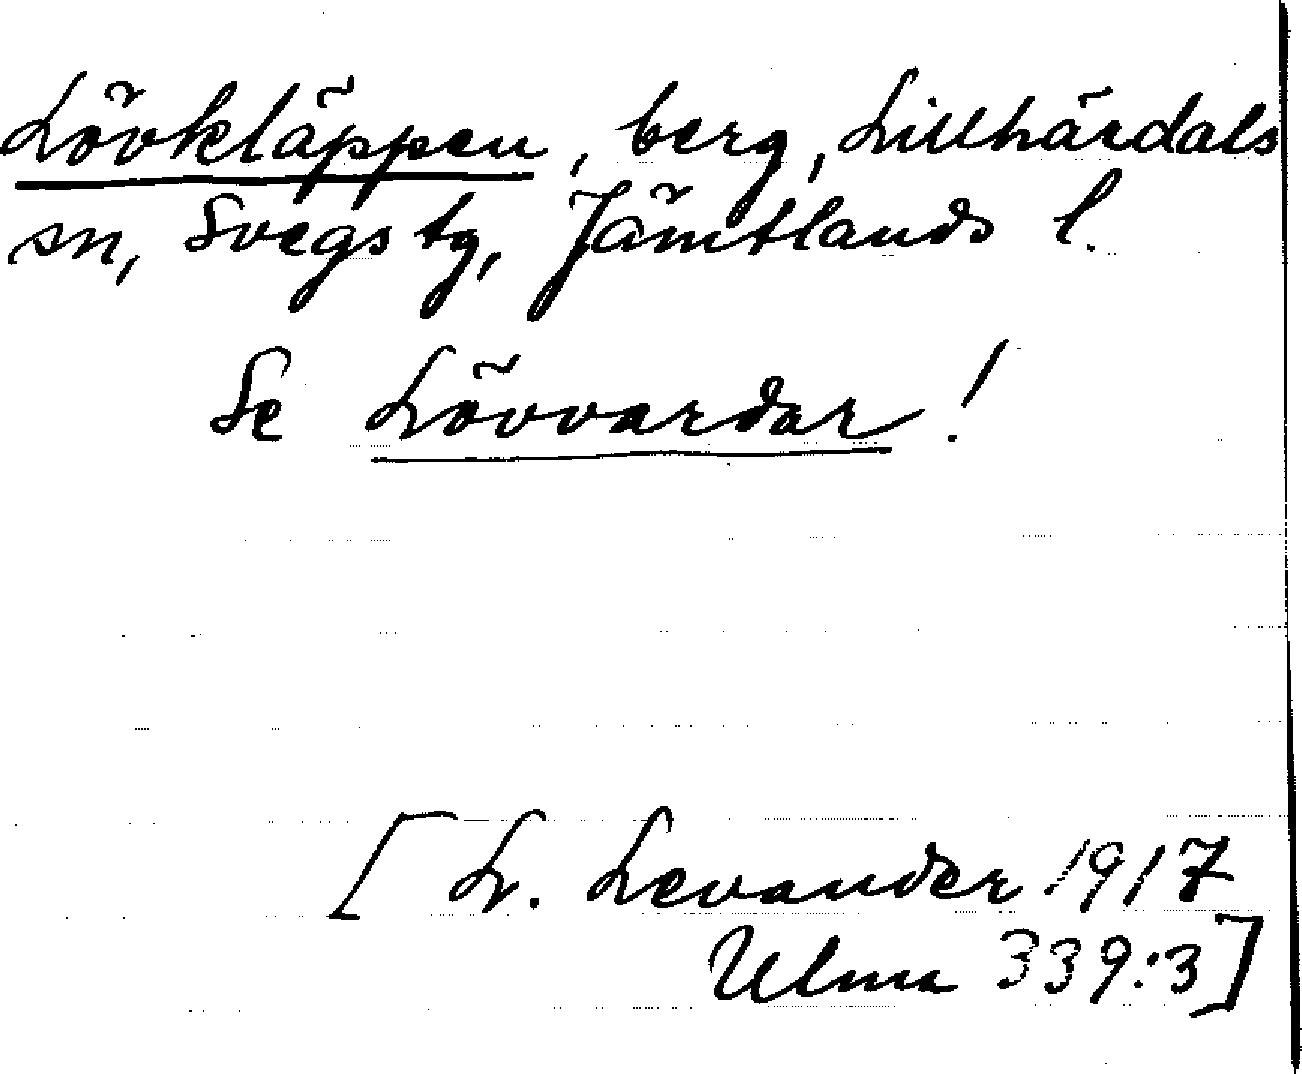 Lövkläppen, berg, Lillhärdals
sn, Svegs tg, Jämtlands l.
Se Lövvardar!
[L. Levander 1917
Ulma 339:3]